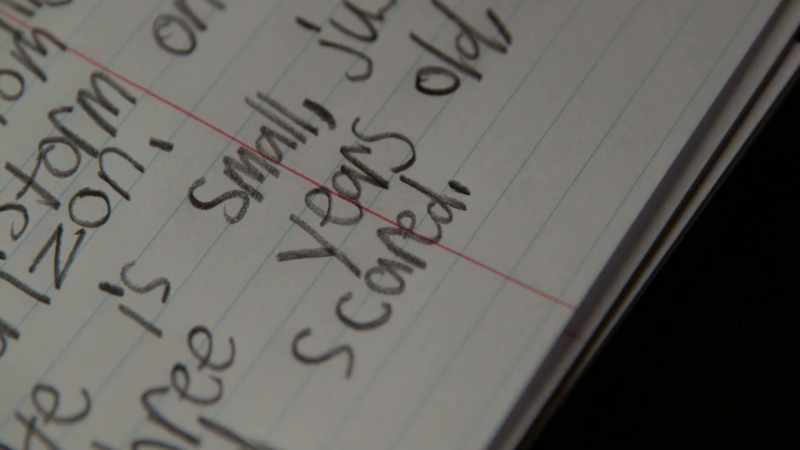 om
storm on
izon.
te is small, ju
hree years old,
scared.